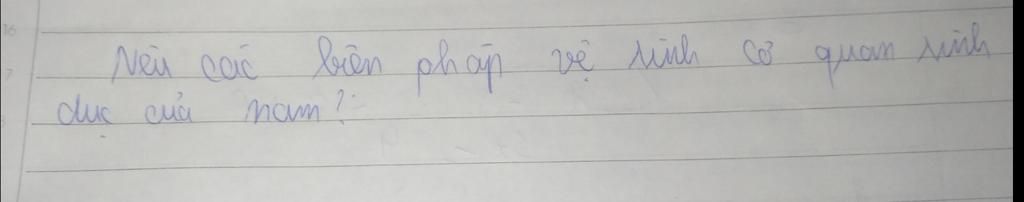 Nêu các biện pháp vệ sinh cơ quan sinh
dục của nam?